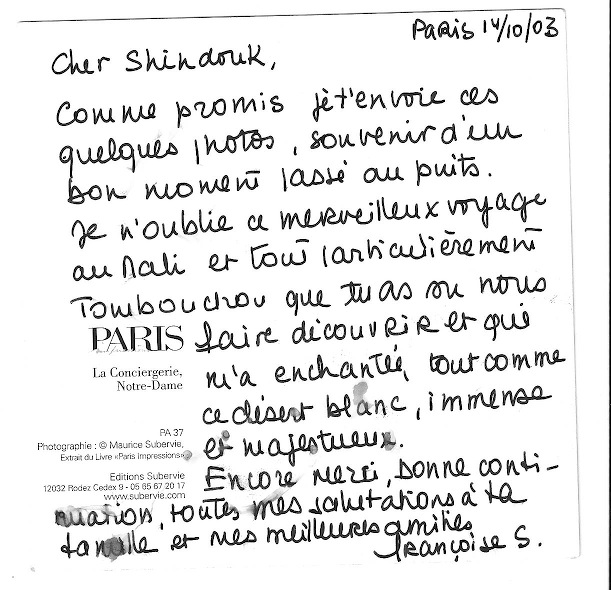 Paris 14/10/03
Cher Shindouk,
comme promis je t'envoie ces
quelques photos, souvenir d'un
bon moment passé au puits.
Je n'oublie ce merveilleux voyage
au Mali et tout particulièrement
Tombouctou que tu as su nous
faire découvrir et qui
m'a enchantée, tout comme
ce désert blanc, immense
et majestueux.
Encore merci, bonne conti-
nuation, toutes mes salutations à ta
famille et mes meilleures amitiés
Françoise S.
PARIS
La Conciergerie,
Notre-Dame
PA 37
Photographie : © Maurice Subervie,
Extrait du Livre «Paris Impressions»
Editions Subervie
12032 Rodez Cedex 9 - 05 65 67 20 17
www.subervie.com